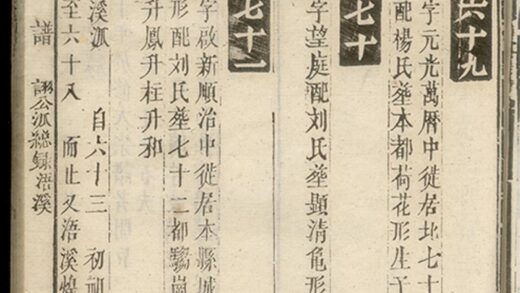 六十九
字元光萬曆中徙居北七十
配楊氏塟本都荷花形生子
七十
字望庭配刘氏塟顯清龜形
七十一
字啟新順治中徙居本縣城
形配刘氏塟七十二都
升鳳升柱升和
溪派 自六十三 初祖
至六十八 而止又浯溪煌
譜 派總録浯溪